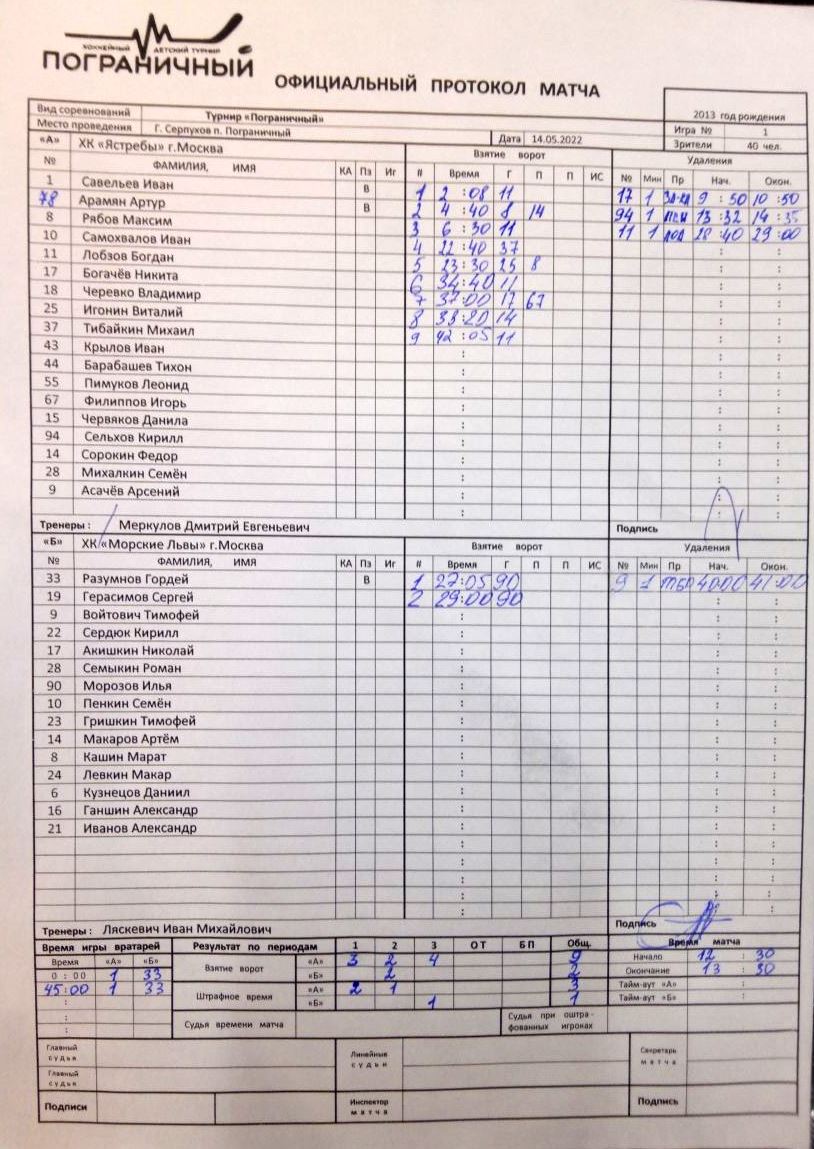 ХОККЕЙНЫЙ ДЕТСКИЙ ТУРНИР
ПОГРАНИЧНЫЙ
ОФИЦИАЛЬНЫЙ ПРОТОКОЛ МАТЧА
2013 год рождения
Вид соревнований Турнир «Пограничный»
Место проведения Г. Серпухов п. Пограничный Дата 14.05.2022 Игра № 1
Зрители 40 чел.
«А» ХК «Ястребы» г.Москва Взятие ворот Удаления
№ ФАМИЛИЯ, ИМЯ КА Пз Иг # Время Г П П ИС № Мин Пр Нач. Окон.
1 Савельев Иван В 1 2 :08 11 17 1 9 : 50 10 :50
78 Арамян Артур В 2 4 :40 8 14 94 1 13 : 32 14 : 35
8 Рябов Максим 3 6 :30 11 11 1 28 :40 29 :00
10 Самохвалов Иван 4 22 :40 37
11 Лобзов Богдан 5 23:30 25 8
17 Богачёв Никита 6 34:40 11
18 Черевко Владимир 7 37:00 17 67
25 Игонин Виталий 8 14
37 Тибайкин Михаил 9 42 :05 11
43 Крылов Иван
44 Барабашев Тихон
55 Пимуков Леонид
67 Филиппов Игорь
15 Червяков Данила
94 Сельхов Кирилл
14 Сорокин Федор
28 Михалкин Семён
9 Асачёв Арсений
Тренеры : Меркулов Дмитрий Евгеньевич Подпись
«Б» ХК «Морские Львы» г.Москва Взятие ворот Удаления
№ ФАМИЛИЯ, ИМЯ КА Пз Иг # Время Г П П ИС № Мин Пр Нач. Окон.
33 Разумнов Гордей В 1 27:05 90 9 1 40:00 41:00
19 Герасимов Сергей 2 29:00 90
9 Войтович Тимофей
22 Сердюк Кирилл
17 Акишкин Николай
28 Семыкин Роман
90 Морозов Илья
10 Пенкин Семён
23 Гришкин Тимофей
14 Макаров Артём
8 Кашин Марат
24 Левкин Макар
6 Кузнецов Даниил
16 Ганшин Александр
21 Иванов Александр
Тренеры : Ляскевич Иван Михайлович Подпись
Время игры вратарей Результат по периодам 1 2 3 ОТ БП Общ. Время матча
Время «А» «Б» Взятие ворот «А» 3 2 4 9 Начало 12 : 30
0 : 00 1 33 «Б» 2 2 Окончание 13 : 30
45:00 1 33 Штрафное время «А» 2 1 3 Тайм-аут «А»
«Б» 1 1 Тайм-аут «Б»
Судья времени матча Судья при оштрафованных игроках
Главный судья Линейные судьи Секретарь матча
Главный судья
Подписи Инспектор матча Подпись